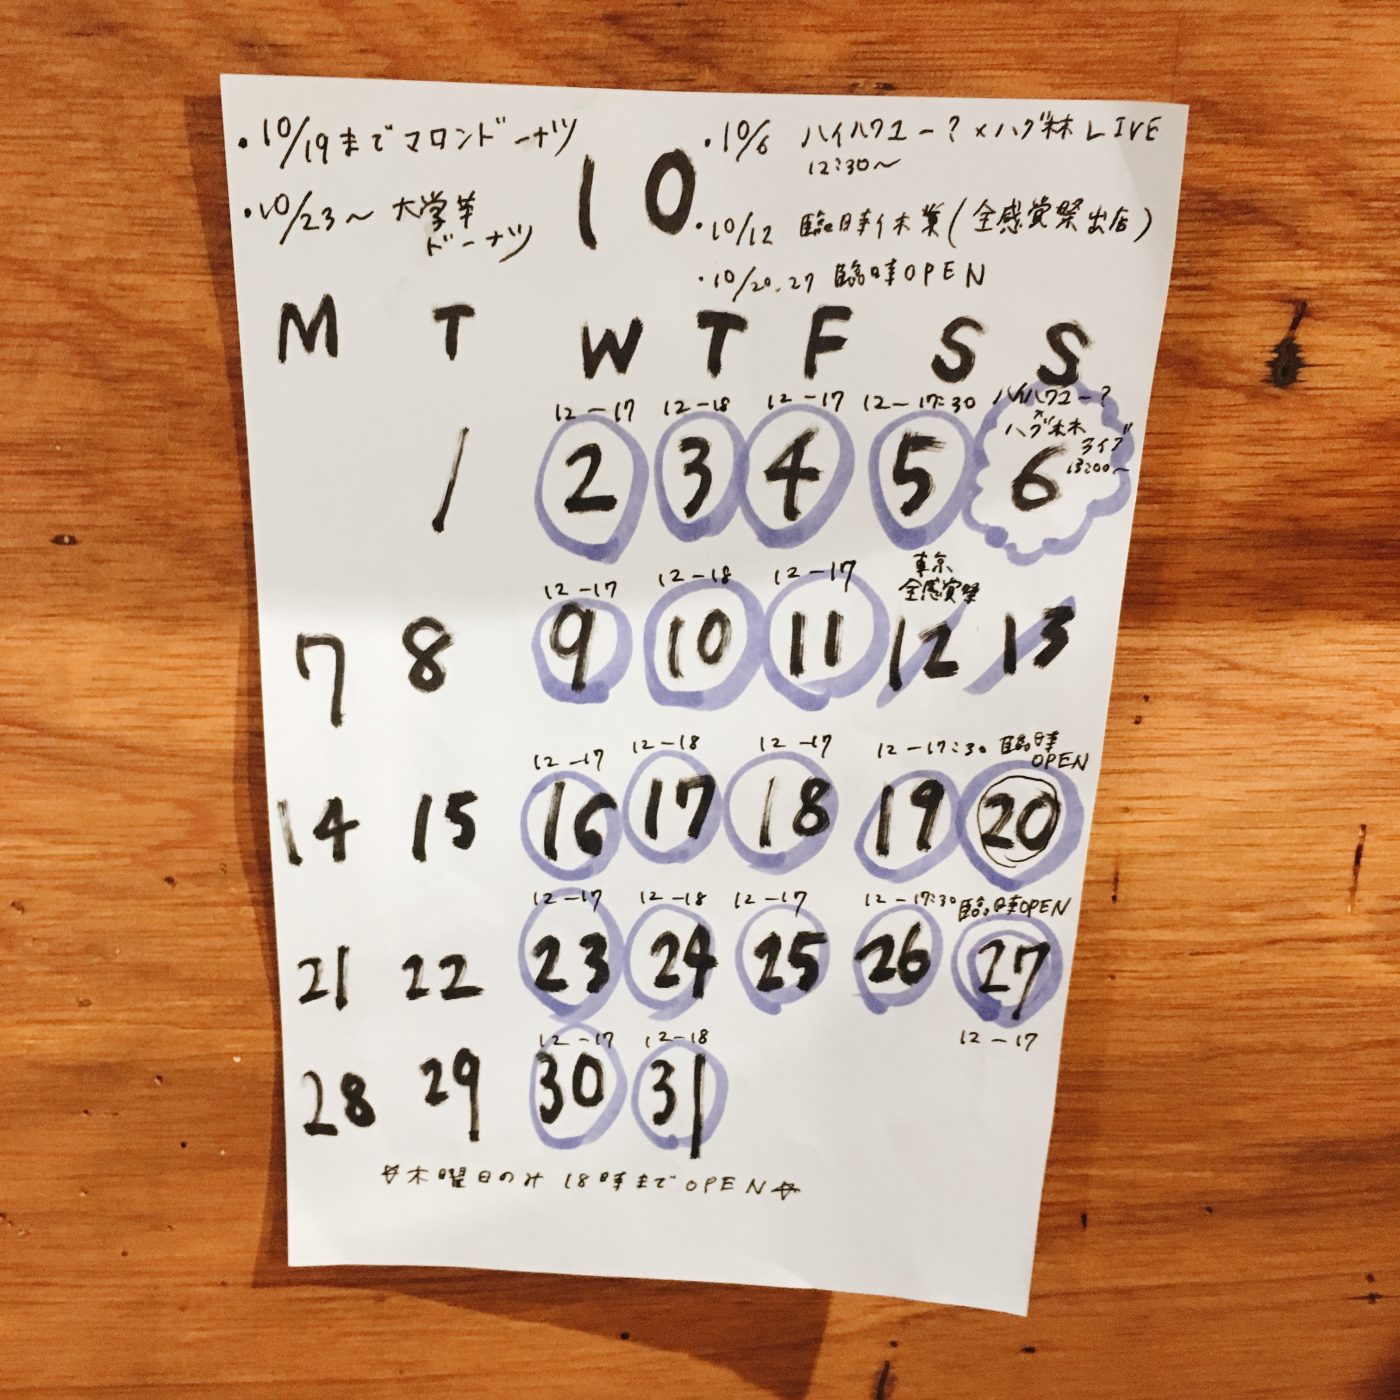 ・10/19まで マロンドーナツ
・10/23〜 大学芋
ドーナツ
10
・10/6 ハイハワユー?×ハグ林LIVE
12:30〜
・10/12 臨時休業(全感賞祭出店)
・10/20.27 臨時OPEN
M T W T F S S
12-17 12-18 12-17 12-17:30 ハイハワユー?
×
ハグ林
ライブ
13:00〜
1 2 3 4 5 6
12-17 12-18 12-17 東京
全感賞祭
7 8 9 10 11 12 13
12-17 12-18 12-17 12-17:30 臨時
OPEN
14 15 16 17 18 19 20
12-17 12-18 12-17 12-17:30 臨時OPEN
21 22 23 24 25 26 27
12-17 12-18 12-17
28 29 30 31
☆木曜日のみ 18時までOPEN☆